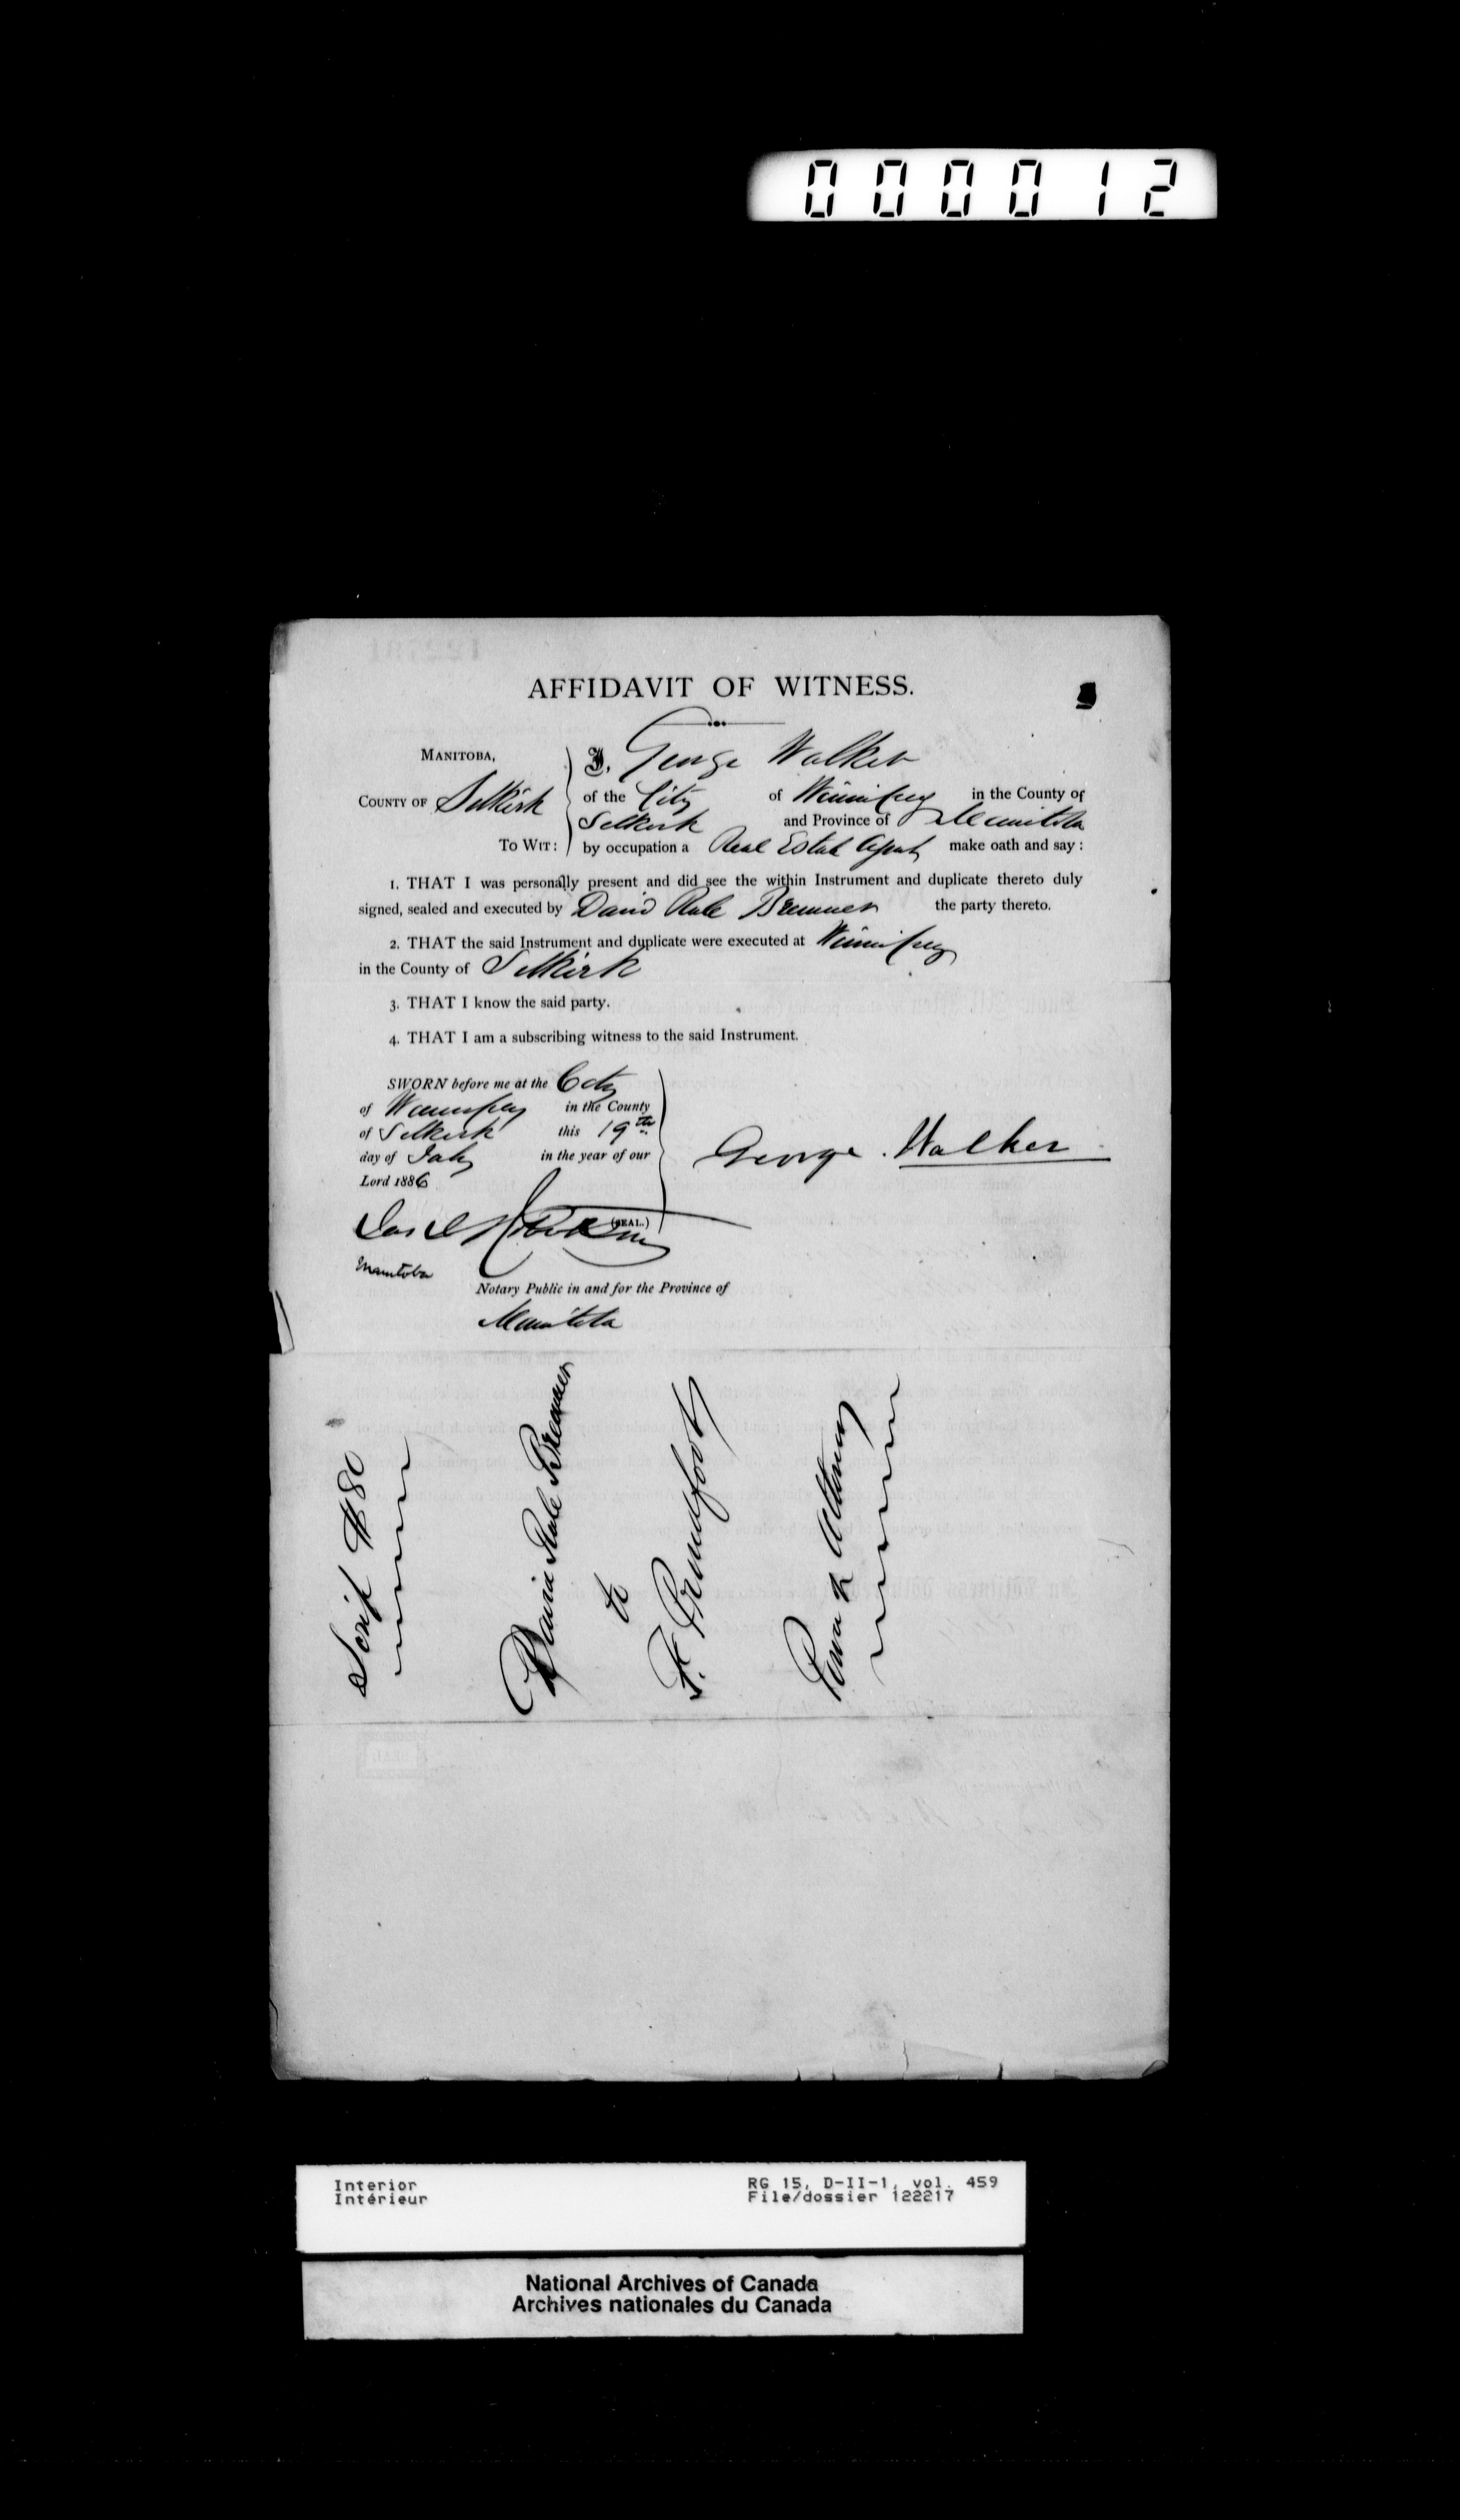 000012
AFFIDAVIT OF WITNESS.
MANITOBA,
I, George Walker
COUNTY OF Selkirk
of the City of Winnipeg in the County of
Selkirk and Province of Manitoba
TO WIT:
by occupation a Real Estate Agent make oath and say:
1. THAT I was personally present and did see the within Instrument and duplicate thereto duly
signed, sealed and executed by David Bremner the party thereto.
2. THAT the said Instrument and duplicate were executed at Winnipeg
in the County of Selkirk
3. THAT I know the said party.
4. THAT I am a subscribing witness to the said Instrument.
SWORN before me at the City
of Winnipeg in the County
of Selkirk this 19th
day of July in the year of our
Lord 1886
George Walker
(SEAL.)
Manitoba
Notary Public in and for the Province of
Manitoba
Scrip $80
David Bremner
to
F.
Power of Attorney
Interior
Intérieur
RG 15, D-II-1, vol. 459
File/dossier 122217
National Archives of Canada
Archives nationales du Canada